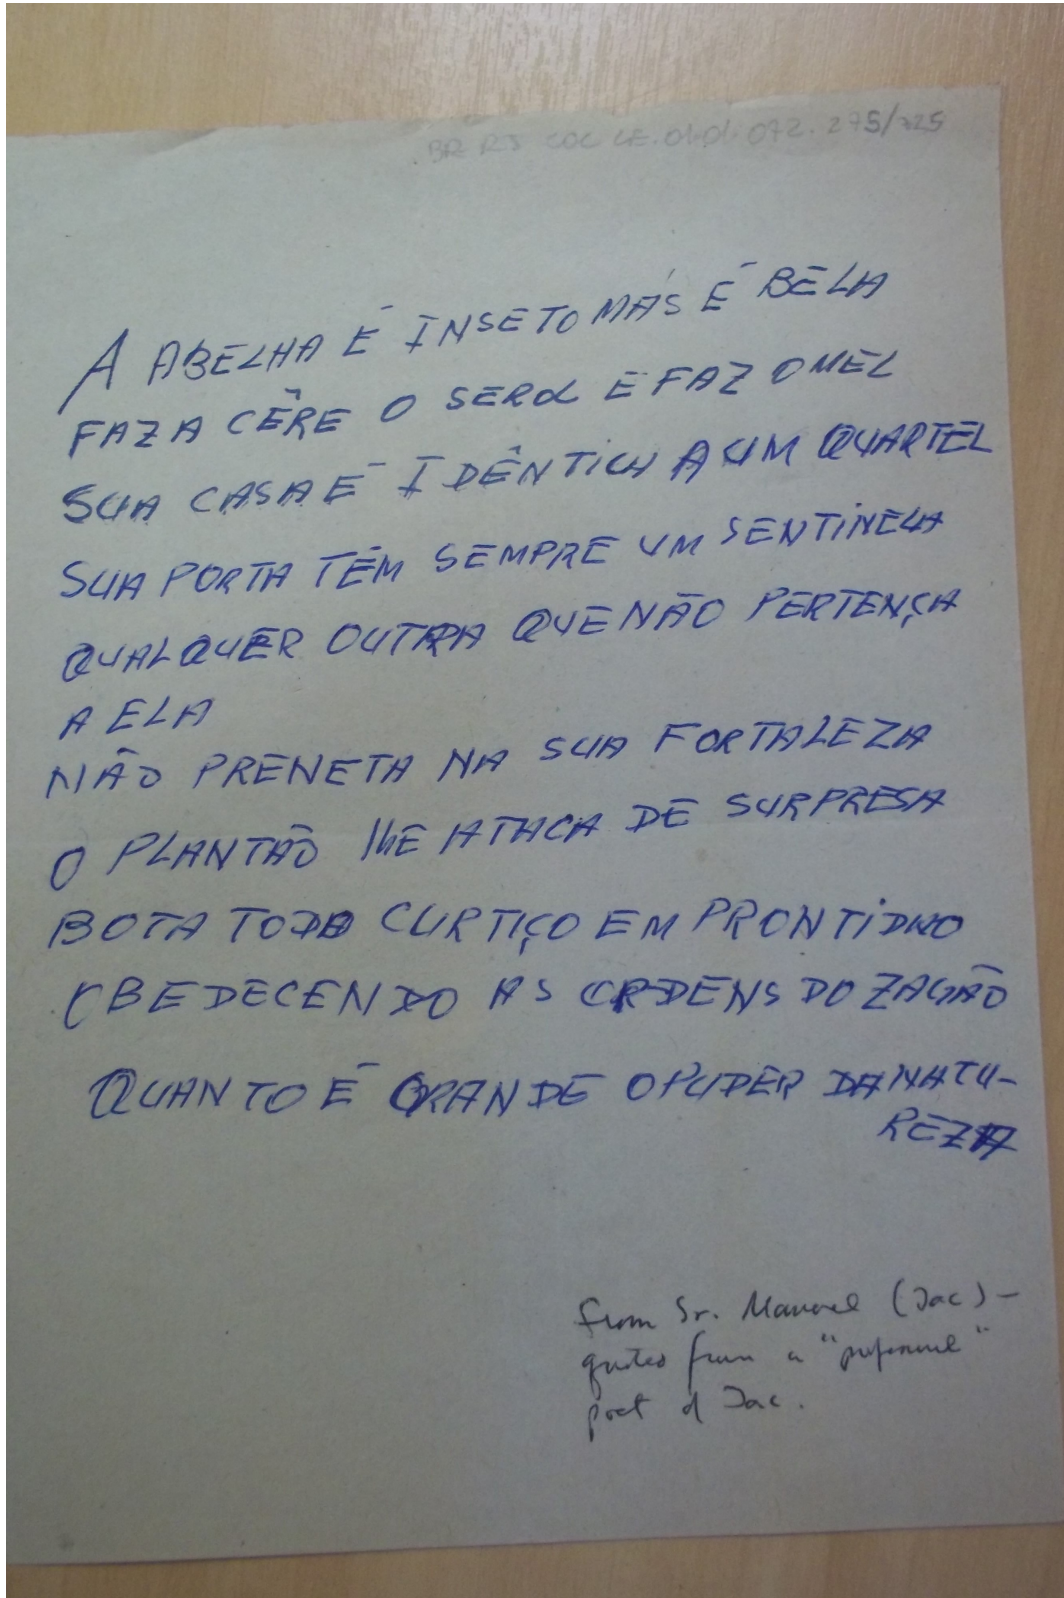 BR RJ COC LE.01.01.072.275/325
A ABELHA É INSETO MÁS É BÉLA
FAZ A CÊRE O SEROL E FAZ O MEL
SUA CASA É IDÊNTICA A UM QUARTEL
SUA PORTA TÊM SEMPRE UM SENTINELA
QUALQUER OUTRA QUE NÃO PERTENÇA
A ELA
NÃO PRENETA NA SUA FORTALEZA
O PLANTÃO lhE ATACA DE SURPRESA
BOTA TODO CURTIÇO EM PRONTIDÃO
OBEDECENDO AS ORDENS DO ZAGÃO
QUANTO É GRANDE O PUDER DA NATU-
REZA
From Sr. Manoel (Jac) –
quoted from a
poet of Jac.